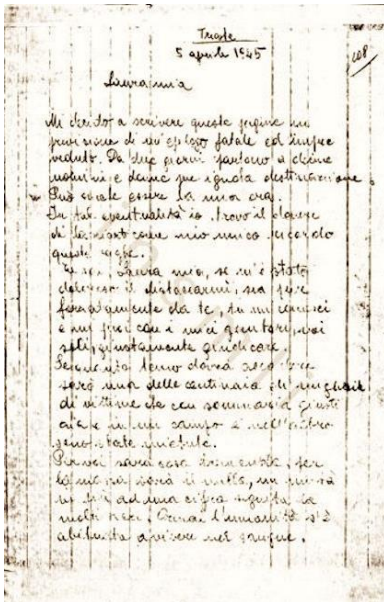 Trieste
5 aprile 1945
108
Laura mia
Mi decido a scrivere queste pagine in
previsione di un'epilogo fatale ed impre
veduto. Da due giorni partono a decine
uomini e donne per ignota destinazione.
Può essere la mia ora.
In tal eventualità io trovo il dovere
di lasciarti come mio unico ricordo
queste righe.
Tu sai, Laura mia, se m'è stato
doloroso il distaccarmi, sia pure
forzatamente da te, tu mi conosci
e mi puoi con i miei genitori, voi
soli, giustamente giudicare.
Se quanto temo dovrà accadere
sarò una delle centinaia di migliaia
di vittime che con sommaria giusti
zia in un campo e nell'altro
sono state mietute.
Per voi sarà cosa tremenda, per
la massa sarà il nulla, un'unità
in più ad una cifra seguita da
molti zeri. Ormai l'umanità s'è
abituata a vivere nel sangue.